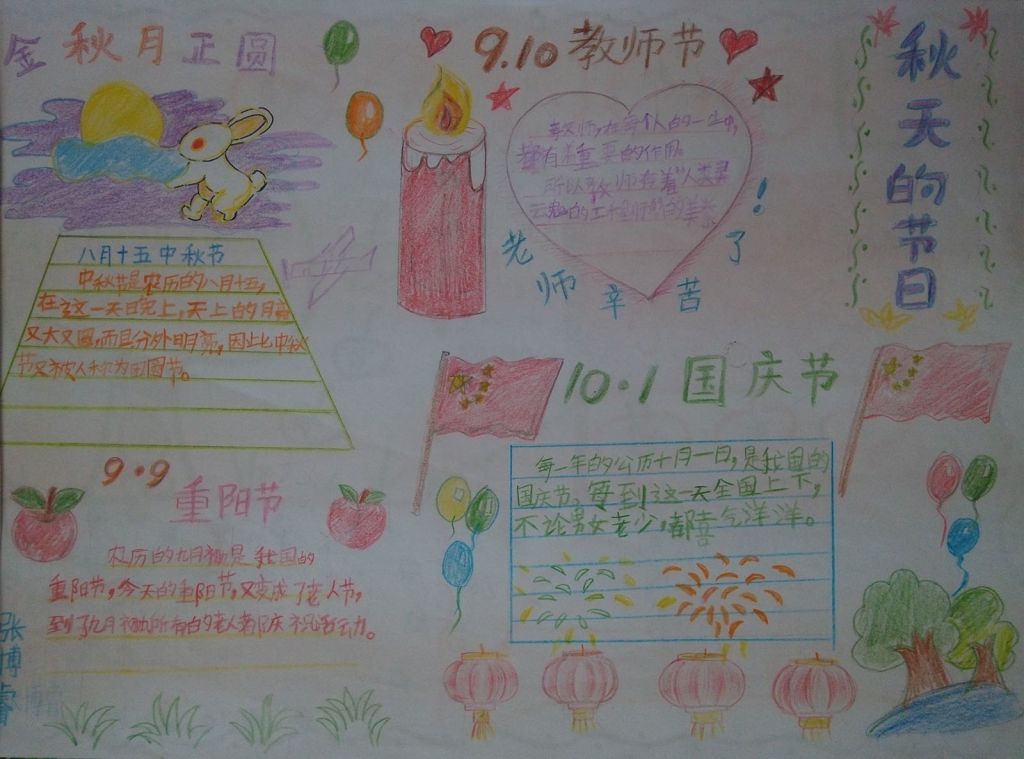 金秋月正圆
八月十五中秋节
中秋节是农历的八月十五,
在这一天晚上,天上的月
又大又圆,而且分外明亮,因此中秋
节又被人称为团圆节。
9.10教师节
教师,在每个人的一生中,
都有着重要的作用
所以教师有着"人类灵
的工程师"的美
老师辛苦了!
秋天的节日
10.1国庆节
每一年的公历十月一日,是我国的
国庆节。每到这一天全国上下,
不论男女老少,都喜气洋洋。
9.9
重阳节
农历的九月初九是我国的
重阳节,今天的重阳节,又变成了老人节,
到了九月初九所有的老人都庆祝活动。
张博睿
博睿